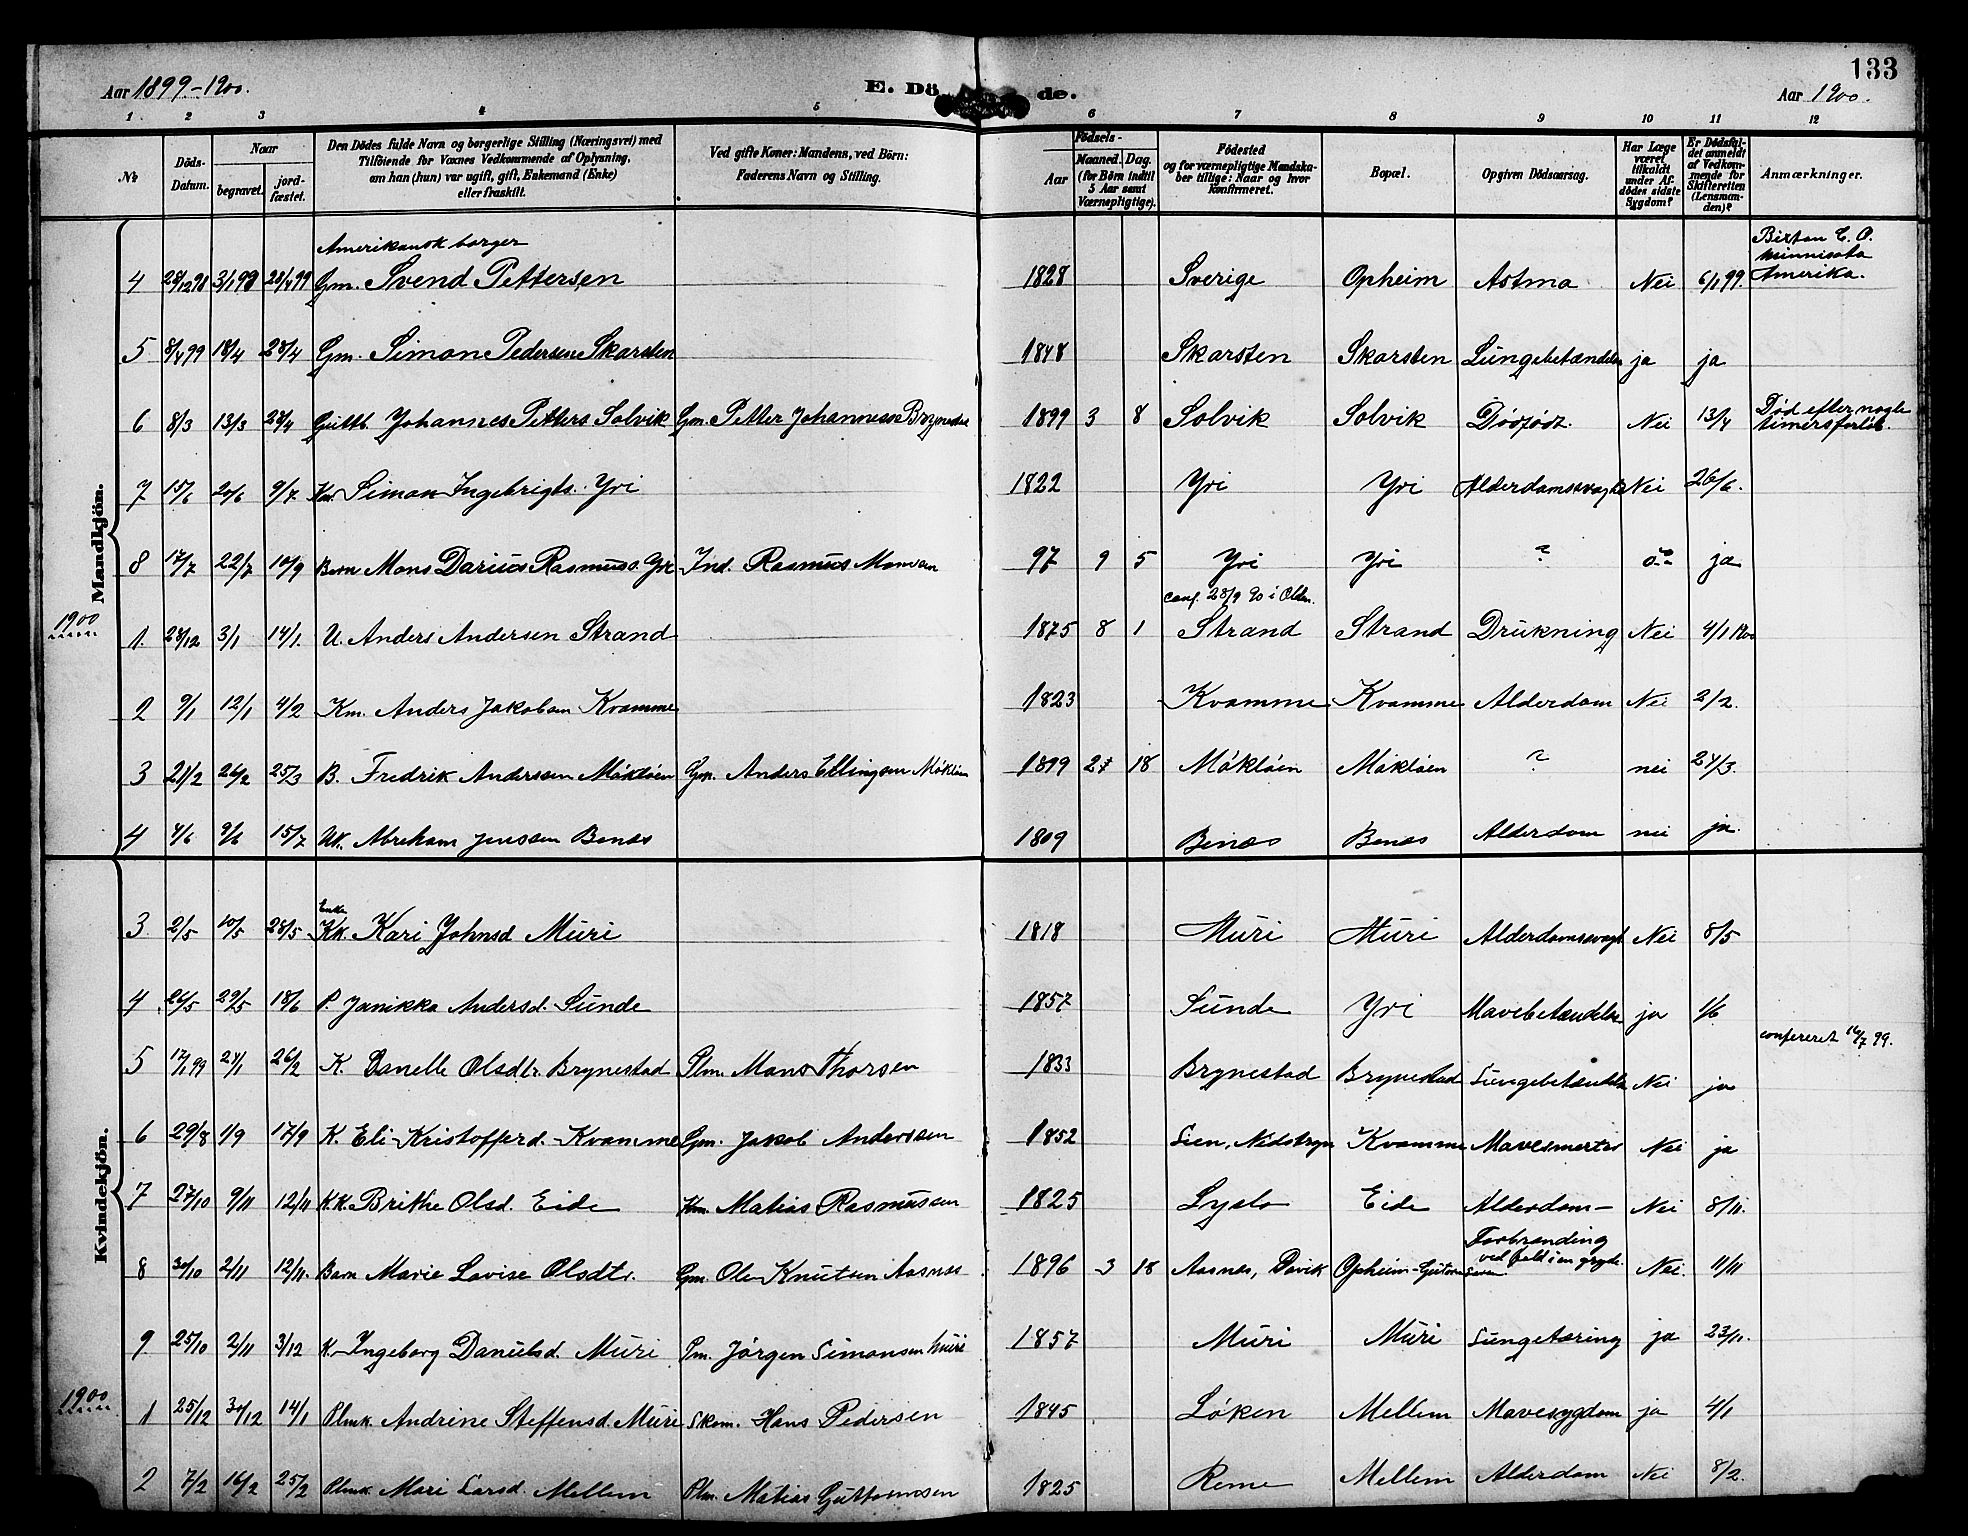 133
Aar 1899-1900.
E. Döde.
Aar 1900.
1 2 3 4 5 6 7 8 9 10 11 12
№
Döds-Datum.
Naar
begravet.
jord-fæstet.
Den Dödes fulde Navn og borgerlige Stilling (Næringsvei) med
Tilföiende for Voxnes Vedkommende af Oplysning,
om han (hun) var ugift, gift, Enkemand (Enke)
eller fraskilt.
Ved gifte Koner: Mandens, ved Börn:
Faderens Navn og Stilling.
Födsels-
Aar
Maaned. Dag.
(for Börn indtil
5 Aar samt
Værnepligtige).
Födested
og for værnepligtige Mandska-
ber tillige: Naar og hvor
konfirmeret.
Bopæl.
Opgiven Dödsaarsag.
Har Læge
været
tilkaldt
under Af-
dödes sidste
Sygdom?
Er Dödsfal-
det anmeldt
af Vedkom-
mende for
Skifteretten
(Lensman-
den)?
Anmærkninger.
Mandkjön.
Amerikansk borger
4 28/12 98 3/1 99 28/4 99 Gm. Svend Pettersen 1828 Sverige Opheim Astma Nei 6/1 99. Bixton C. O. Minnisota Amerika.
5 8/4 99 18/4 28/4 Gm. Simon Pedersen Skarsten 1848 Skarsten Skarsten Lungebetændelse ja ja
6 8/3 13/3 28/4 Guttb. Johannes Petters Solvik Gm. Petter Johannesse Brynestad 1899 3 8 Solvik Solvik Dödfödt. Nei 13/4 Död efter nogle timers forløb.
7 15/6 20/6 9/7 Km. Simon Ingebrigts. Yri 1822 Yri Yri Alderdomssvaghed Nei 26/6.
8 17/7 22/7 10/9 Barn Mons Darius Rasmuss. Yri Ind. Rasmus Monsen 97 9 5 Yri Yri ? ja
1900
conf. 28/9 90 i Olden.
1. 28/12 3/1 14/1. U. Anders Andersen Strand 1875 8 1 Strand Strand Drukning Nei 4/1 1900
2 9/1 12/1 4/2 Km. Anders Jakobsen Kvamme 1823 Kvamme Kvamme Alderdom Nei 2/2.
3 21/2 26/2 25/3 B. Fredrik Anderssen Mökløen Gm. Anders Ellingsen Mökløen 1899 2 18 Mökløen Mökløen ? nei 24/3.
4 4/6 9/6 15/7 Abreham Jenssen Benæs 1809 Benæs Benæs Alderdom nei ja
Kvindekjön.
Enke
3 2/5 10/5 28/5 Kk. Kari Johnsd Muri 1818 Muri Muri Alderdomssvagh. Nei 8/5
4 26/5 29/5 18/6 P. Janikka Andersd. Sunde 1857 Sunde Yri Mavebetændelse ja 1/6
confereret 16/7 99.
5 17/1 99 24/1 26/2 K. Danelle Olsdtr. Brynestad Plm. Mons Thorsen 1833 Brynestad Brynestad Lungebetændelse Nei ja
6 29/8 1/9 17/9 K. Eli Kristofferd. Kvamme Gm. Jakob Anderssen 1852 Sien, Nedstryn Kvamme Mavesmerter Nei ja
7 27/10 9/11 12/11 K.K. Brithe Olsd. Eide Km. Matias Rasmussen 1825 Lyslo Eide Alderdom Nei 8/11.
8 30/10 2/11 12/11. Barn Marie Lovise Olsdtr. Gm. Ole Knutsen Aasnes 1896 3 18 Aasnes, Davik Opheim Forbrænding ved fald i en gryde Nei. 11/11
9 25/10 2/11 3/12 K. Ingeborg Danielsd. Muri Pm. Jørgen Simonsen Muri 1857 Muri Muri Lungetæring ja 23/11.
1900
1 25/12 30/12 14/1 Plmk. Andrine Steffensd. Muri Skom. Hans Pedersen 1845 Løken Mellem Mavesygdom ja 4/1
2 7/2 16/2 25/2 Plmk Mari Larsd. Mellem Plm. Matias Guttormsen 1825 Reme Mellem Alderdom Nei 8/2.